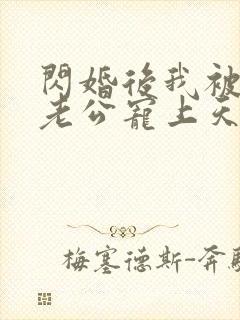 閃婚後我被
老公寵上天
梅塞德斯-奔馳